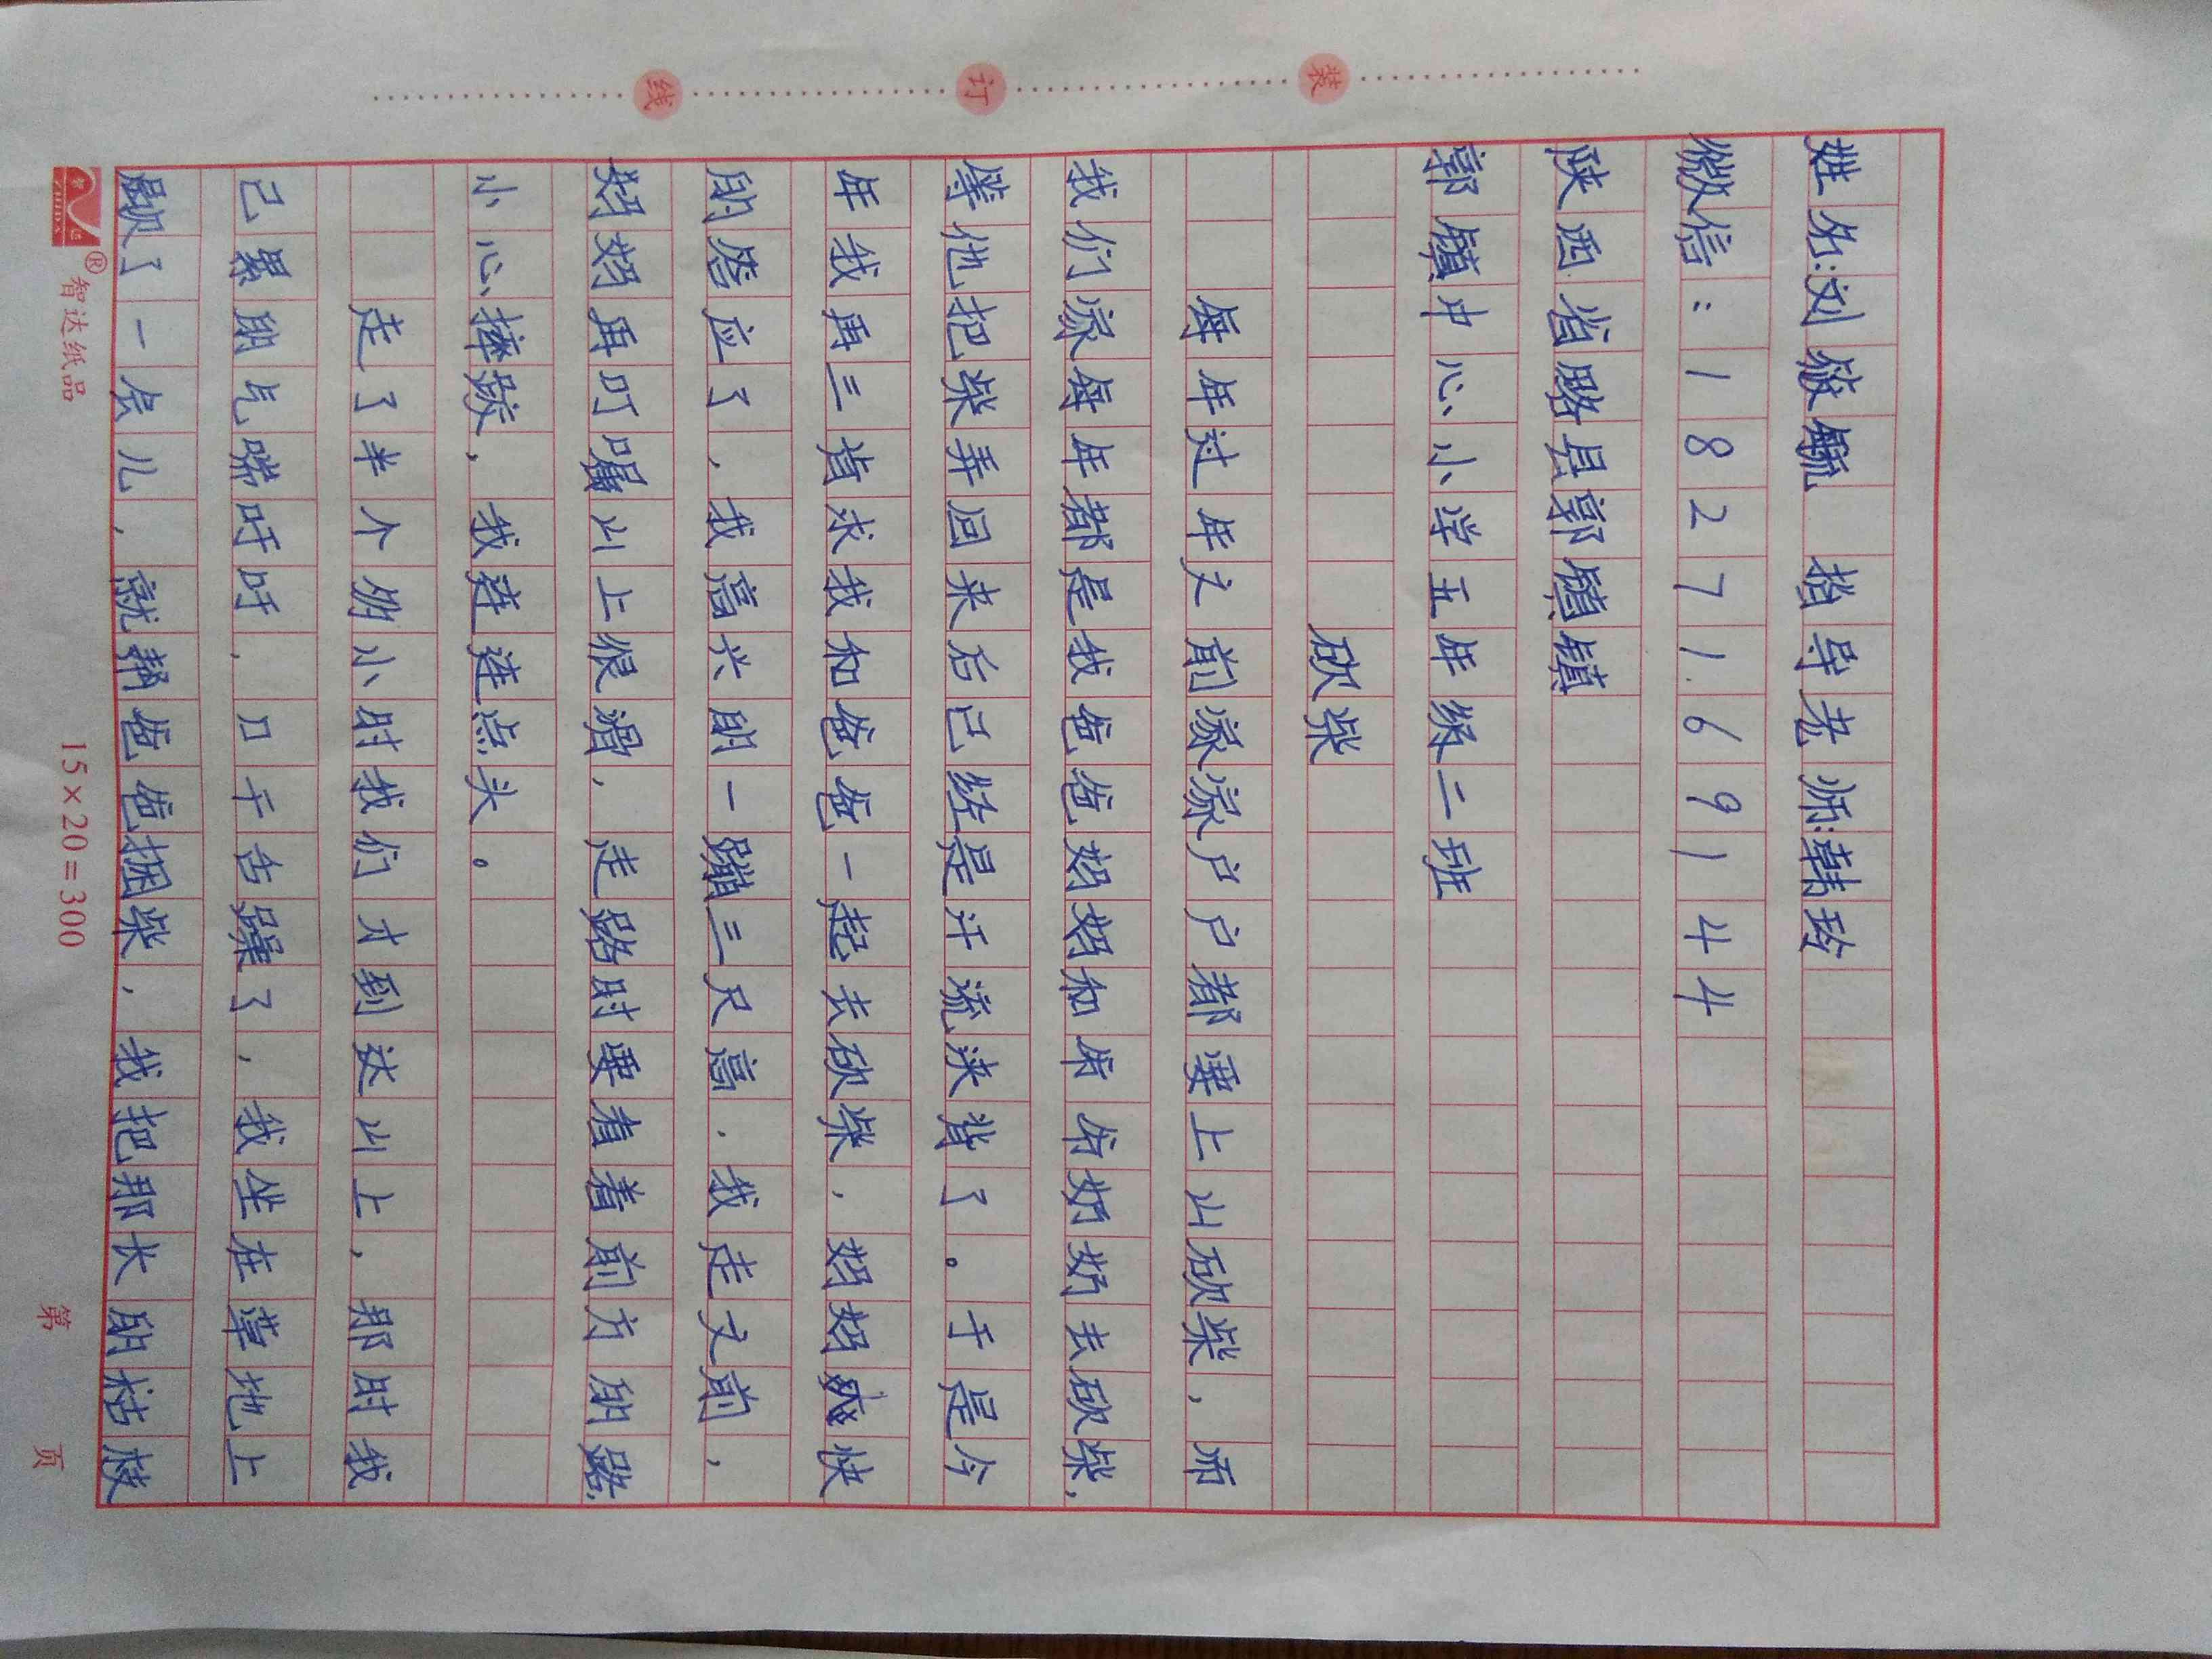 装 订 线
姓名:刘敏毓 指导老师:韩玲
微信:18271.69144
陕西省略县郭镇镇
郭镇中心小学五年级二班
砍柴
每年过年之前家家户户都要上山砍柴,而
我们家每年都是我爸爸妈妈和爷爷奶奶去砍柴,
等他把柴弄回来后已经是汗流浃背了。于是今
年我再三肯求我和爸爸一起去砍柴,妈妈爽快
的答应了,我高兴的一蹦三尺高.我走之前,
妈妈再叮嘱山上很滑,走路时要看着前方的路
小心摔跤,我连连点头。
走了半个多小时我们才到达山上,那时我
己累的气喘吁吁,口干舌躁了,我坐在草地上
歇了一会儿,就帮爸爸捆柴,我把那长的枯枝
智达纸品
ZHIDA
®
15×20=300
第 页